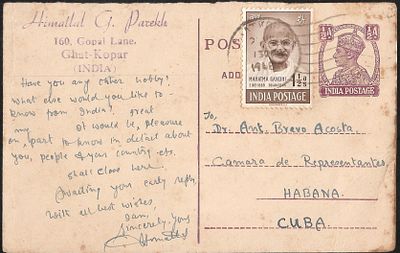 Himatlal G. Parekh
160, Gopal Lane,
Ghat-Kopar
(INDIA)
Have you any other hobby?
What else would you like to
know from India?, great
my It would be, pleasure
on, part to know in detail about
you, people & your country etc.
shall close here.
Awaiting your early reply,
With all best wishes,
Sincerely Yours
Himatlal
POS
ADD
MAHATMA GANDHI
1½ As
INDIA POSTAGE
½A
INDIA POSTAGE
To,
Dr. Ant. Bravo Acosta,
Camara de Representantes,
HABANA
CUBA